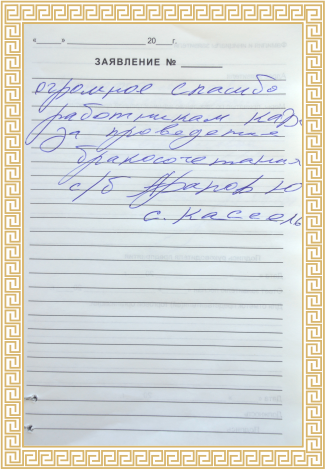 «____» ____________ 20___г.
ЗАЯВЛЕНИЕ № ______
огромное спасибо
работникам
за проведения
бракосочетания
с/б
с. Кассель